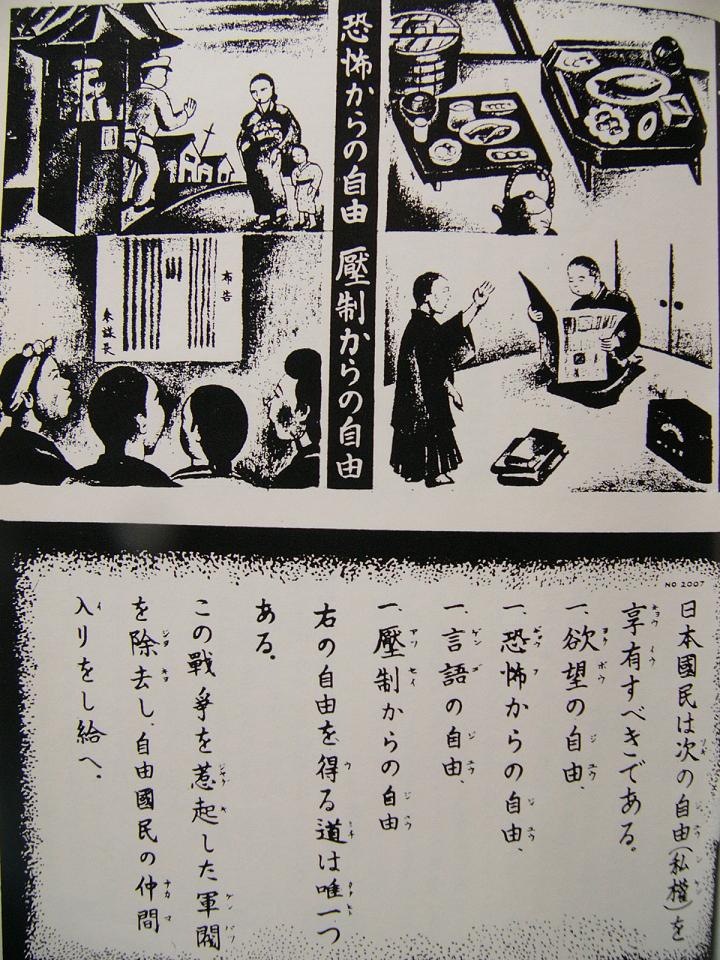 恐怖からの自由　壓制からの自由
布告
參謀長
NO 2007
日本國民は次の自由(私權)を
享有すべきである。
一、欲望の自由、
一、恐怖からの自由、
一、言語の自由、
一、壓制からの自由
右の自由を得る道は唯一つ
ある。
この戰爭を惹起した軍閥
を除去し、自由國民の仲間
入りをし給へ。